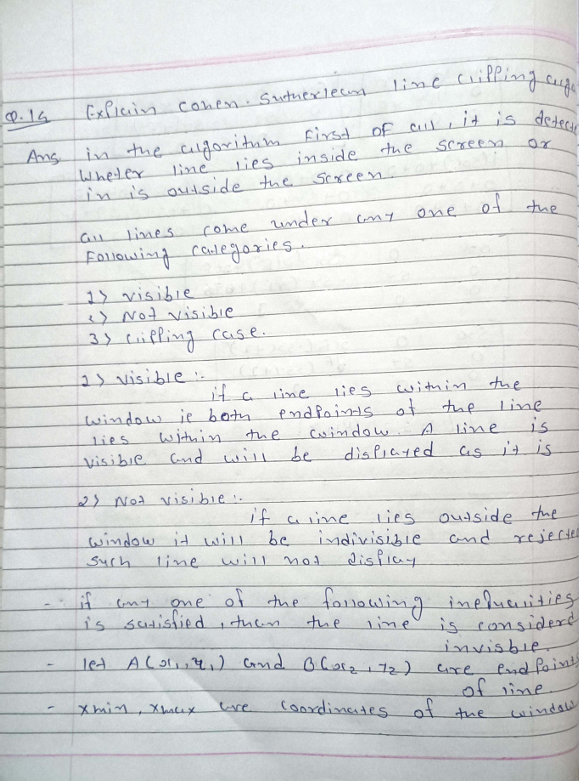 Q.14 Explain Cohen-Sutherlean line clipping
Ans in the algorithm First of all, it is
wheter line lies inside the screen or
in is outside the screen.
all lines come under any one of the
Following categories.
1) visible
2) Not visible
3) clipping case.
1) visible :-
if a line lies within the
window ie both endpoints of the line
lies within the window. A line is
visible and will be displayed as it is
2) Not visible :-
if a line lies outside the
window it will be indivisible and rejected
such line will not display
- if any one of the following inequalities
is satisfied, then the line is considerd
invisble.
- let A(x1, y1) and B(x2, y2) are endpoints
of line
- xmin, xmax are coordinates of the window